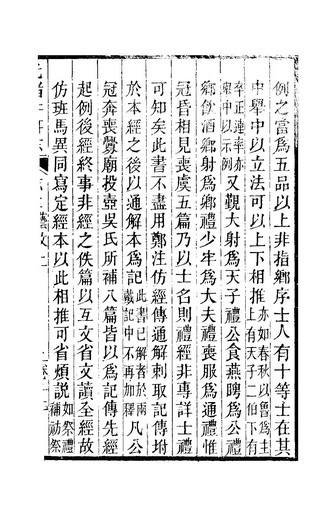 例之當爲五品以上非指鄉序士人有十等士在其
中舉中以立法可以上下相推亦如春秋以魯爲主上有天子二伯下有
卒正連率亦卑中以示例又觀大射爲天子禮公食燕聘爲公禮
鄉飲酒鄉射爲鄉禮少牢爲大夫禮喪服爲通禮惟
冠昏相見喪虞五篇乃以士名則禮經非專詳士禮
可知矣此書不盡用鄭注仿經傳通解刺取記傳坿
於本經之後以通解本爲記此書已解者於兩戴記中不再加釋凡公
冠奔喪釁廟投壺吳氏所補八篇皆以爲記傳先經
起例後經終事非經之佚篇以互文省文讀全經故
仿班馬異同寫定經本以此相推可省煩說如祭禮補祊祭